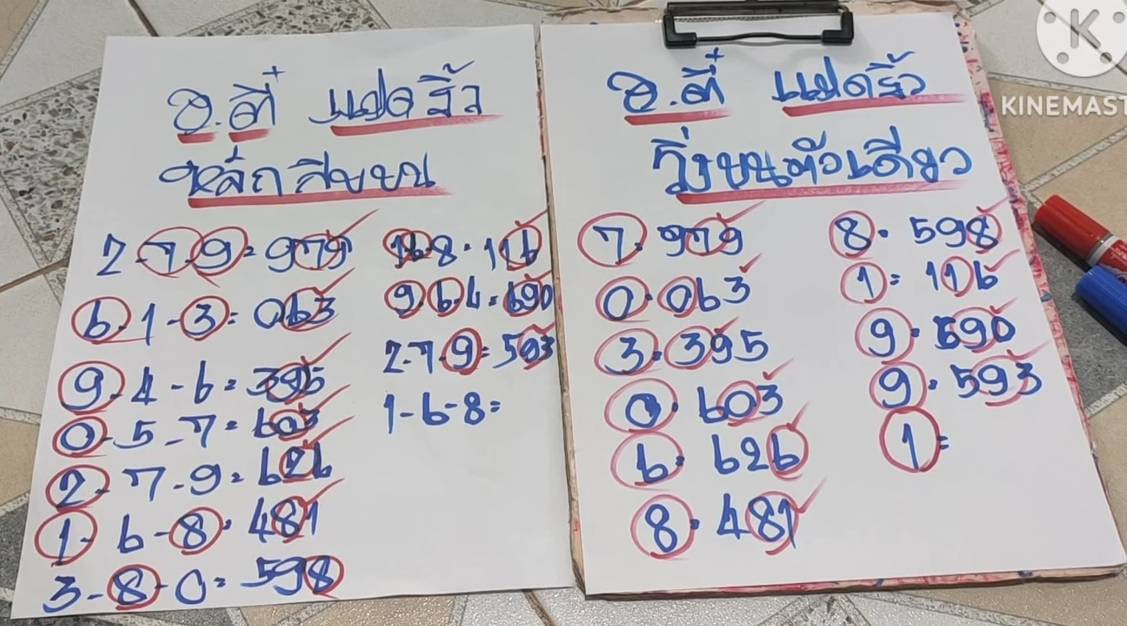 อ.ตี๋ แปดริ้ว
หลักสิบบน
2-7-9=979
6-1-3=063
9-4-6=395
0-5-7=603
2-7-9=626
1-6-8=481
3-8-0=598
1-6-8=116
9-6-4=690
2-7-9=593
1-6-8=
อ.ตี๋ แปดริ้ว
วิ่งบนตัวเดียว
7=979
0=063
3=395
0=603
6=626
8=481
8=598
1=116
9=690
9=593
1=
K
KINEMAST